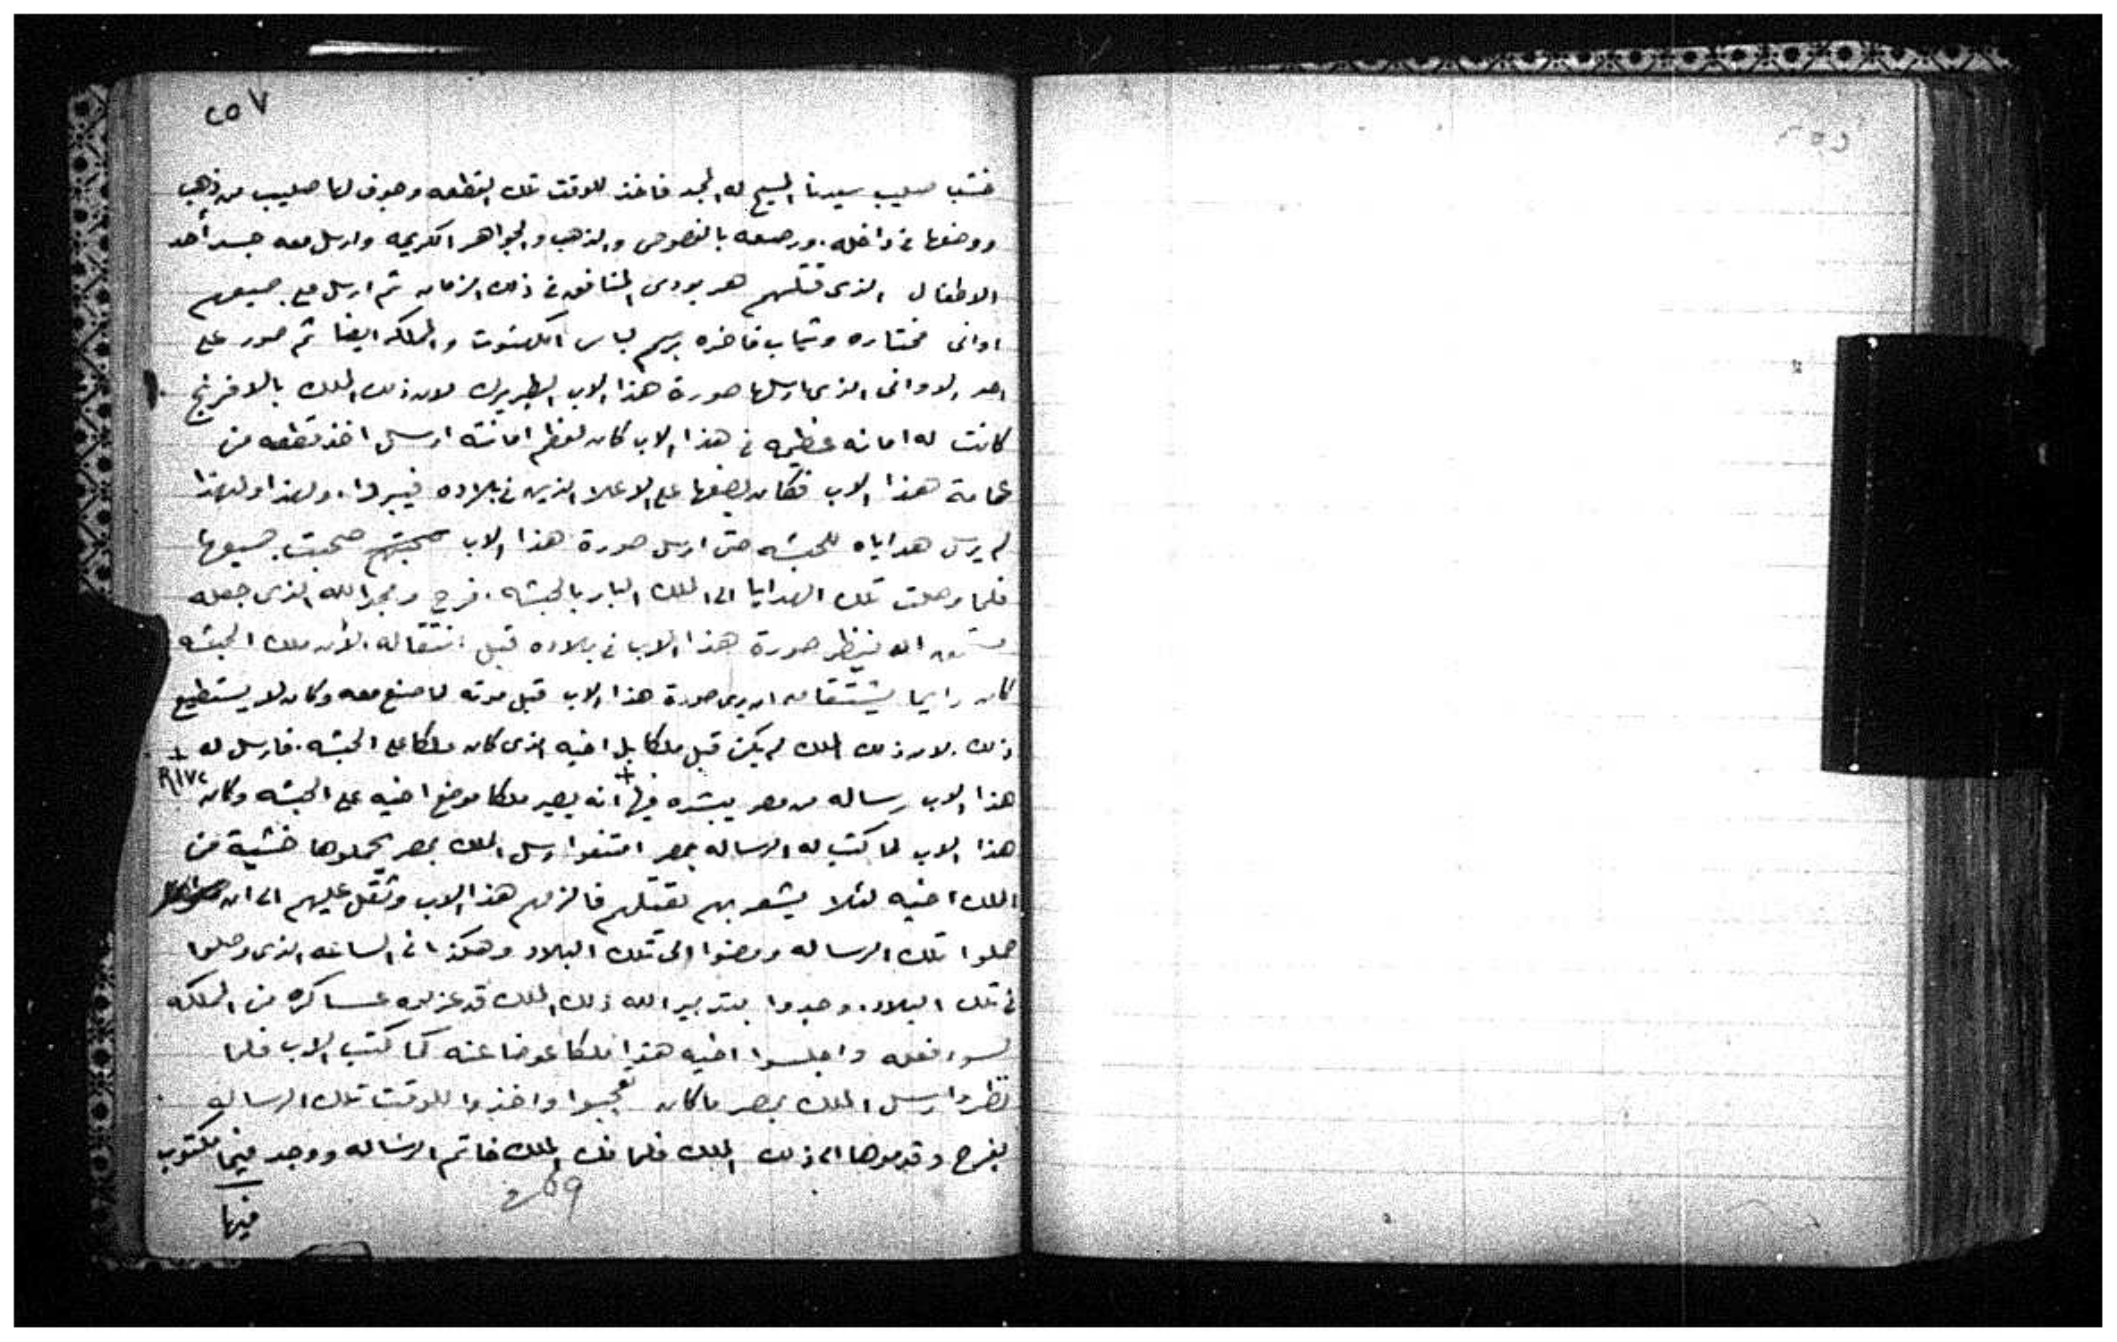 ٢٥٧
خشب صليب سيدنا المسيح له المجد فاخذ للوقت تلك القطعه وجوف لها صليب من ذهب
ووضعها فى داخله. ورصعه بالفصوص والذهب والجواهر الكريمه وارسل معه جسد أحد
الاطفال الذى قتلهم هريودس المنافق فى ذلك الزمان ثم ارسل مع جميعهم
اوانى مختاره وثياب فاخره برسم لباس الكهنوت والمملكه ايضا ثم صور على
احد الاوانى الذى ارسلها صورة هذا الاب البطريرك لان ذلك الملك بالافرنج
كانت له امانه عظيمه فى هذا الاب كان لعظم امانته ارسل اخذ قطعه من
عمامة هذا الاب فكان يضعها على الاعلا الذين فى بلاده فيبروا. ولهذا ولهذا
لم يرسل هداياه للحبشه حتى ارسل صورة هذا الاب صحبت جميعها
فلما وصلت تلك الهدايا الى الملك البار بالحبشه. فرح ومجد الله الذى جعله
ينظر صورة هذا الاب فى بلاده قبل انتقاله. لأن ملك الحبشه
كان دايما يشتقا ان يرى صورة هذا الاب قبل موته لما صنع معه وكان لا يستطيع
ذلك. لان ذلك الملك لم يكن قبل ملكا بل اخيه الذى كان ملكا على الحبشه. فارسل له +
R١٧٢
هذا الاب رساله من مصر يبشره فيها + أنه يصير ملكا موضع اخيه على الحبشه وكان
هذا الاب لما كتب له الرساله بمصر امتنعوا رسل الملك بمصر يحملوها خشية من
الملك اخيه لئلا يشعر بهم يقتلهم فالزمهم هذا الاب وثقل عليهم الى ان
حملوا تلك الرساله ومضوا الى تلك البلاد وهكذا فى الساعه الذى وصلوا
فى تلك البلاد. وجدوا بتدبير الله ذلك الملك قد عزلوه عساكره من المملكه
لسوء فعله واجلسوا اخيه هذا ملكا عوضا عنه كما كتب الاب فلما
نظروا رسل الملك بمصر ما كان تعجبوا واخذوا للوقت تلك الرساله
بفرح وقدموها الى ذلك الملك فلما فك الملك خاتم الرساله ووجد فيها مكتوب
فيها